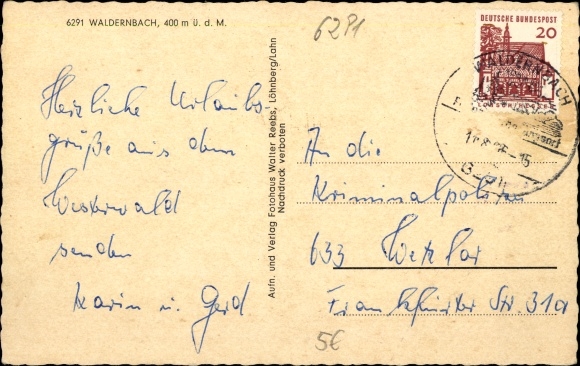 6291 WALDERNBACH, 400 m ü. d. M.
6291
DEUTSCHE BUNDESPOST
20
LORSCH/HESSEN
WALDERNBACH
Herzliche Urlaubs-
grüße aus dem
Westerwald
senden
Karin u. Gerd
Aufn. und Verlag Fotohaus Walter Reebs, Löhnberg/Lahn
Nachdruck verboten
An die
Kriminalpolizei
633 Wetzlar
Frankfurter Str. 31a
5€